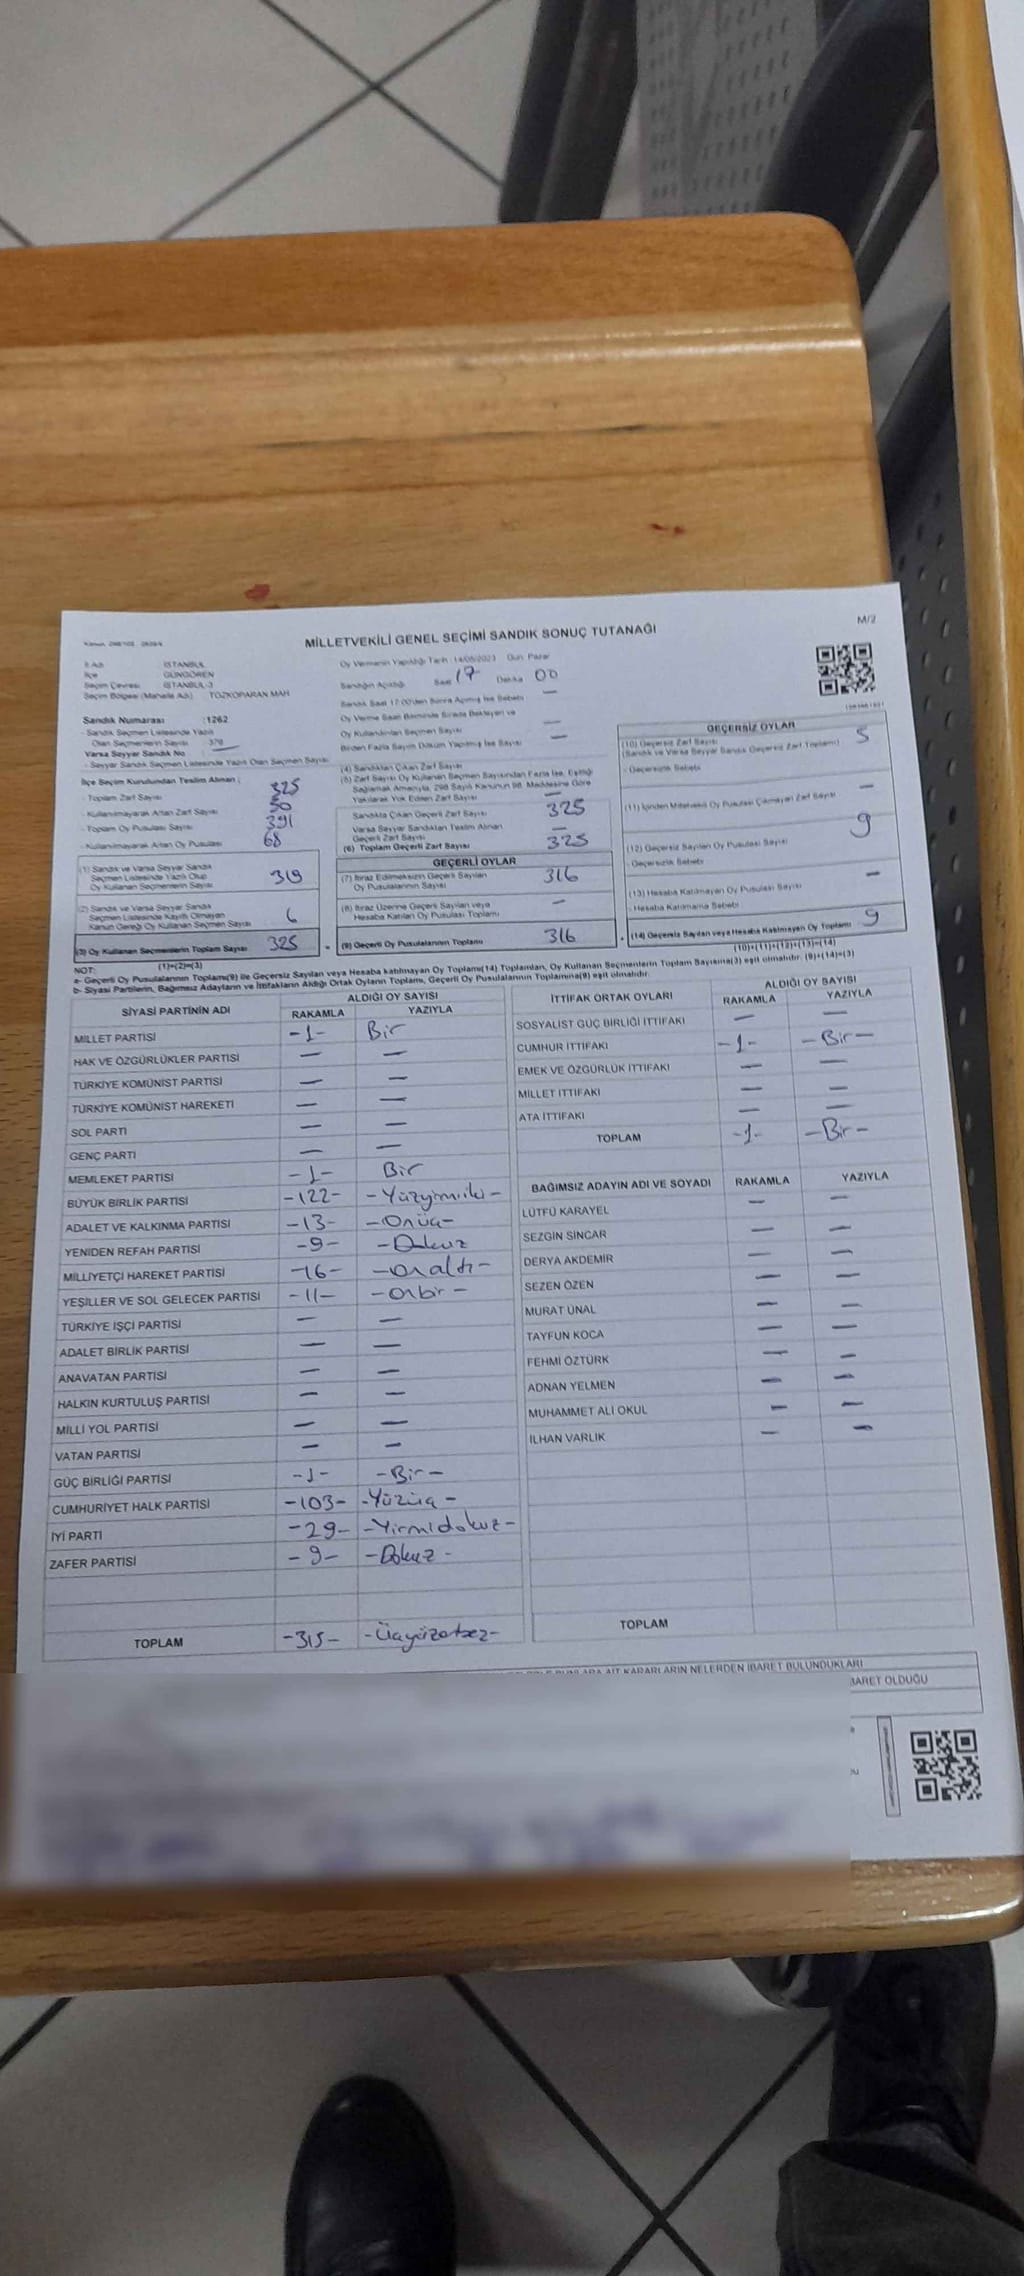 MİLLETVEKİLİ GENEL SEÇİMİ SANDIK SONUÇ TUTANAĞI
M/2
İl Adı İSTANBUL
İlçe GÜNGÖREN
Seçim Çevresi İSTANBUL-3
Seçim Bölgesi (Mahalle Adı) TOZKOPARAN MAH
Oy Vermenin Yapıldığı Tarih :14/05/2023 Gün Pazar
Sandığın Açıldığı Saat 17 Dakika 00
Sandık Saat 17:00'den Sonra Açılmış İse Sebebi —
Oy Verme Saati Bitiminde Sırada Bekleyen ve
Oy Kullandırılan Seçmen Sayısı —
Birden Fazla Sayım Döküm Yapılmış İse Sayısı —
Sandık Numarası :1262
- Sandık Seçmen Listesinde Yazılı
Olan Seçmenlerin Sayısı 376
Varsa Seyyar Sandık No —
- Seyyar Sandık Seçmen Listesinde Yazılı Olan Seçmen Sayısı
İlçe Seçim Kurulundan Teslim Alınan :
- Toplam Zarf Sayısı 325
- Kullanılmayarak Artan Zarf Sayısı 50
- Toplam Oy Pusulası Sayısı 391
- Kullanılmayarak Artan Oy Pusulası 68
(1) Sandık ve Varsa Seyyar Sandık
Seçmen Listesinde Yazılı Olup
Oy Kullanan Seçmenlerin Sayısı 319
(2) Sandık ve Varsa Seyyar Sandık
Seçmen Listesinde Kayıtlı Olmayan
Kanun Gereği Oy Kullanan Seçmen Sayısı 6
(3) Oy Kullanan Seçmenlerin Toplam Sayısı 325
(4) Sandıktan Çıkan Zarf Sayısı
(5) Zarf Sayısı Oy Kullanan Seçmen Sayısından Fazla İse, Eşitliği
Sağlamak Amacıyla, 298 Sayılı Kanunun 98. Maddesine Göre
Yakılarak Yok Edilen Zarf Sayısı —
Sandıkta Çıkan Geçerli Zarf Sayısı 325
Varsa Seyyar Sandıktan Teslim Alınan
Geçerli Zarf Sayısı —
(6) Toplam Geçerli Zarf Sayısı 325
GEÇERLİ OYLAR
(7) İtiraz Edilmeksizin Geçerli Sayılan
Oy Pusulalarının Sayısı 316
(8) İtiraz Üzerine Geçerli Sayılan veya
Hesaba Katılan Oy Pusulası Toplamı —
(9) Geçerli Oy Pusulalarının Toplamı 316
GEÇERSİZ OYLAR
(10) Geçersiz Zarf Sayısı 5
(Sandık ve Varsa Seyyar Sandık Geçersiz Zarf Toplamı)
- Geçersizlik Sebebi
(11) İçinden Milletvekili Oy Pusulası Çıkmayan Zarf Sayısı —
(12) Geçersiz Sayılan Oy Pusulası Sayısı 9
- Geçersizlik Sebebi
(13) Hesaba Katılmayan Oy Pusulası Sayısı —
- Hesaba Katılmama Sebebi
(14) Geçersiz Sayılan veya Hesaba Katılmayan Oy Toplamı 9
NOT: (1)+(2)=(3) (10)+(11)+(12)+(13)=(14)
a- Geçerli Oy Pusulalarının Toplamı(9) ile Geçersiz Sayılan veya Hesaba katılmayan Oy Toplamı(14) Toplamları, Oy Kullanan Seçmenlerin Toplam Sayısına(3) eşit olmalıdır. (9)+(14)=(3)
b- Siyasi Partilerin, Bağımsız Adayların ve İttifakların Aldığı Ortak Oyların Toplamı, Geçerli Oy Pusulalarının Toplamına(9) eşit olmalıdır.
SİYASİ PARTİNİN ADI ALDIĞI OY SAYISI
RAKAMLA YAZIYLA
MİLLET PARTİSİ -1- Bir
HAK VE ÖZGÜRLÜKLER PARTİSİ — —
TÜRKİYE KOMÜNİST PARTİSİ — —
TÜRKİYE KOMÜNİST HAREKETİ — —
SOL PARTİ — —
GENÇ PARTİ — —
MEMLEKET PARTİSİ -1- Bir
BÜYÜK BİRLİK PARTİSİ -122- -Yüzyirmiiki-
ADALET VE KALKINMA PARTİSİ -13- -Onüç-
YENİDEN REFAH PARTİSİ -9- -Dokuz
MİLLİYETÇİ HAREKET PARTİSİ -16- -Onaltı-
YEŞİLLER VE SOL GELECEK PARTİSİ -11- -Onbir-
TÜRKİYE İŞÇİ PARTİSİ — —
ADALET BİRLİK PARTİSİ — —
ANAVATAN PARTİSİ — —
HALKIN KURTULUŞ PARTİSİ — —
MİLLİ YOL PARTİSİ — —
VATAN PARTİSİ — —
GÜÇ BİRLİĞİ PARTİSİ -1- -Bir-
CUMHURİYET HALK PARTİSİ -103- -Yüzüç-
İYİ PARTİ -29- -Yirmidokuz-
ZAFER PARTİSİ -9- -Dokuz-
TOPLAM -315-
İTTİFAK ORTAK OYLARI ALDIĞI OY SAYISI
RAKAMLA YAZIYLA
SOSYALİST GÜÇ BİRLİĞİ İTTİFAKI — —
CUMHUR İTTİFAKI -1- -Bir-
EMEK VE ÖZGÜRLÜK İTTİFAKI — —
MİLLET İTTİFAKI — —
ATA İTTİFAKI — —
TOPLAM -1- -Bir-
BAĞIMSIZ ADAYIN ADI VE SOYADI RAKAMLA YAZIYLA
LÜTFÜ KARAYEL — —
SEZGİN SİNCAR — —
DERYA AKDEMİR — —
SEZEN ÖZEN — —
MURAT ÜNAL — —
TAYFUN KOCA — —
FEHMİ ÖZTÜRK — —
ADNAN YELMEN — —
MUHAMMET ALİ OKUL — —
İLHAN VARLIK — —
TOPLAM
AİT KARARLARIN NELERDEN İBARET BULUNDUKLARI
İBARET OLDUĞU